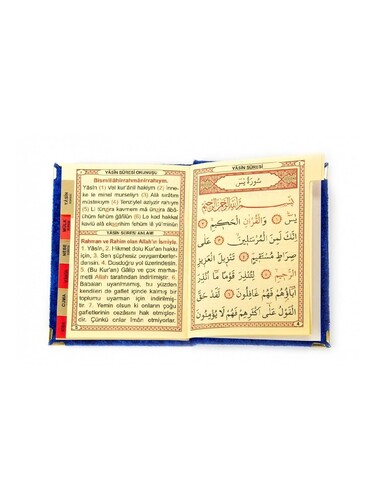 YÂSÎN SÛRESİ OKUNUŞU
Bismillâhirrahmânirrahîym.
Yâsîn (1) Vel kur'ânil hakiym (2) inne-
ke le minel murseliyn (3) Alâ sırâtım
müstekıym (4) Tenziylel aziyzir rahiym
(5) Li tünzira kavmem mâ ünzira âbâ-
ühüm fehüm ğâfilûn (6) Le kad hakkal
kavlü alâ ekserihim fehüm lâ yü'minûn
YÂSÎN SÛRESİ ANLAMI
Rahman ve Rahim olan Allah'ın İsmiyle.
1. Yâsîn, 2. Hikmet dolu Kur'an hakkı
için, 3. Sen şüphesiz peygamberler-
densin. 4. Dosdoğru yol üzerindesin.
5. (Bu Kur'an) Gâlip ve çok merha-
metli Allah tarafından indirilmiştir. 6.
Babaları uyarılmamış, bu yüzden
kendileri de gaflet içinde kalmış bir
toplumu uyarman için indirilmiş-
tir. 7. Yemin olsun ki onların çoğu
gafletlerinin cezasını hak etmişler-
dir. Çünkü onlar îmân etmiyorlar.
YÂSÎN
CUMA
YÂSÎN SÛRESİ
سورة يس
بسم الله الرحمن الرحيم
يس ﴿١﴾ وَالْقُرْاٰنِ الْحَكِيمِ ﴿٢﴾
اِنَّكَ لَمِنَ الْمُرْسَلِينَ ﴿٣﴾ عَلٰى
صِرَاطٍ مُسْتَقِيمٍ ﴿٤﴾ تَنْزِيلَ الْعَزِيزِ
الرَّحِيمِ ﴿٥﴾ لِتُنْذِرَ قَوْمًا مَا اُنْذِرَ
اٰبَاؤُهُمْ فَهُمْ غَافِلُونَ ﴿٦﴾ لَقَدْ حَقَّ
الْقَوْلُ عَلٰى اَكْثَرِهِمْ فَهُمْ لَا يُؤْمِنُونَ